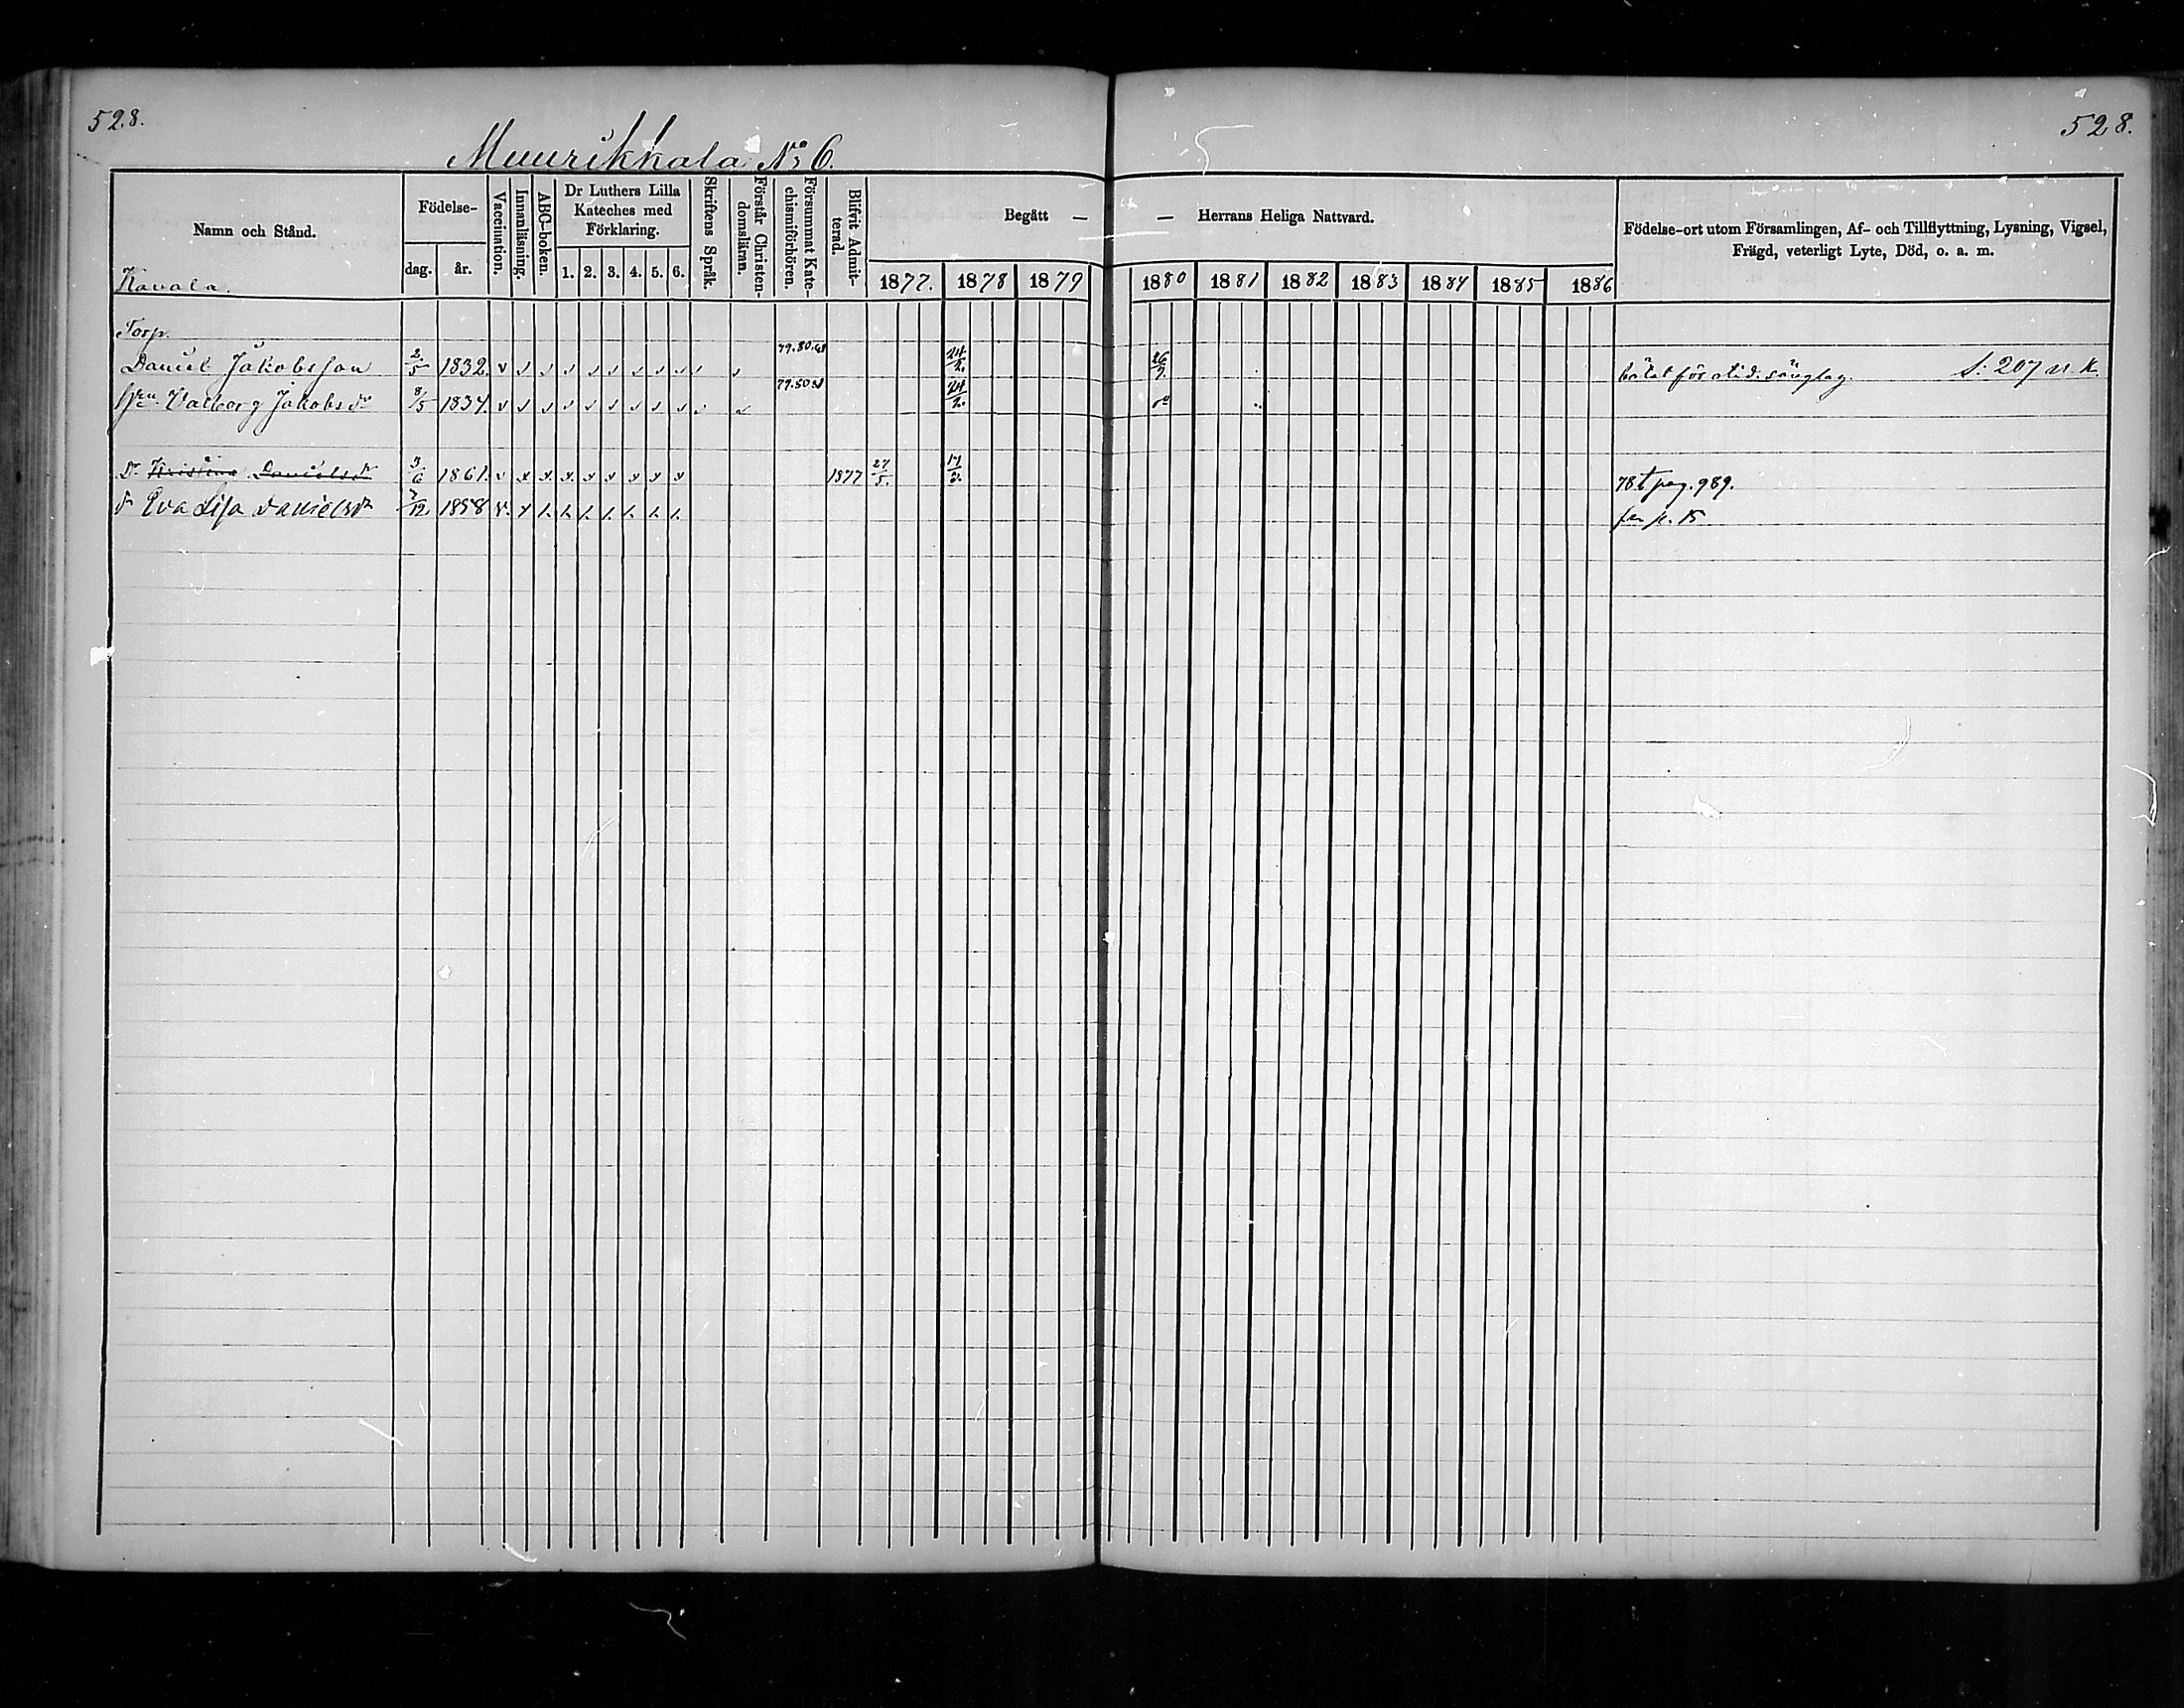 528.
528.
Muurikkala No 6.
Namn och Stånd.
Födelse-
dag.
år.
Vaccination.
Innanläsning.
ABC-boken.
Dr Luthers Lilla Kateches med Förklaring.
1. 2. 3. 4. 5. 6.
Skriftens Språk.
Förstår Christendomsläran.
Försummat Katechismiförhören.
Blifvit Admitterad.
Begått — — Herrans Heliga Nattvard.
1877. 1878 1879 1880 1881 1882 1883 1884 1885 1886
Födelse-ort utom Församlingen, Af- och Tillflyttning, Lysning, Vigsel,
Frägd, veterligt Lyte, Död, o. a. m.
Kavala.
Torp.
Daniel Jakobsson 2/5 1832. v 79.80.81 24/2. 26/9. bötat för otid. sänglag. S: 207 n. K.
Hru Valborg Jakobsdr 8/5 1834. v 79.80.81 24/2. do
Dr Kristina Danielsdr 3/6 1861. v x x x x x x x x 1877 27/5. 17/2. 78 t pag. 989.
dr Eva Lisa Danielsdr 7/12. 1858 v. x 1. 1. 1. 1. 1. 1. 1. fr p. 15